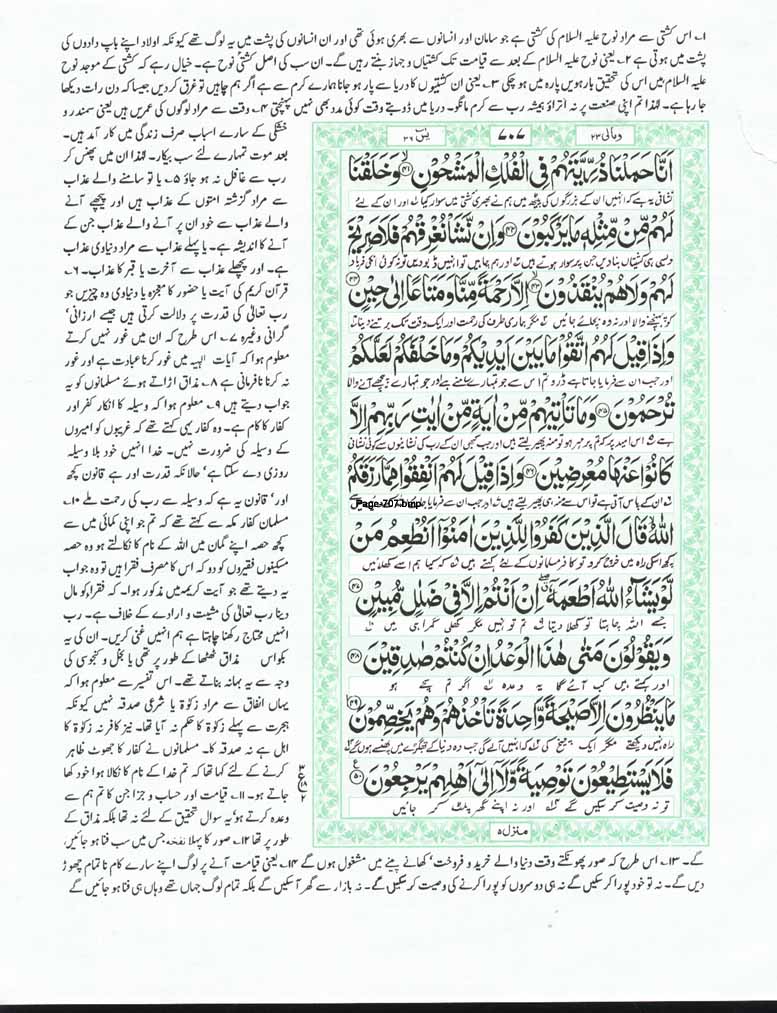 ۱۔ اس کشتی سے مراد نوح علیہ السلام کی کشتی ہے جو سامان اور انسانوں سے بھری ہوئی تھی اور ان انسانوں کی پشت میں یہ لوگ تھے کیونکہ اولاد اپنے باپ دادوں کی
پشت میں ہوتی ہے ۲۔ یعنی نوح علیہ السلام کے بعد سے قیامت تک کشتیاں و جہاز بنتے رہیں گے۔ ان سب کی اصل کشتی نوح ہے۔ خیال رہے کہ کشتی کے موجد نوح
علیہ السلام ہیں اس کی تحقیق بارہویں پارہ میں ہو چکی ۳۔ یعنی ان کشتیوں کا دریا سے پار ہو جانا ہمارے کرم سے ہے اگر ہم چاہیں تو غرق کر دیں جیسا کہ دن رات دیکھا
جا رہا ہے۔ لہٰذا تم اپنی صنعت پر نہ اتراؤ ہمیشہ رب سے کرم مانگو۔ دریا میں ڈوبتے وقت کوئی مدد بھی نہیں پہنچتی ۴۔ وقت سے مراد لوگوں کی عمریں ہیں یعنی سمندر و
خشکی کے سارے اسباب صرف زندگی میں کار آمد ہیں۔
بعد موت تمہارے لئے سب بیکار۔ لہٰذا ان میں پھنس کر
رب سے غافل نہ ہو جاؤ ۵۔ یا تو سامنے والے عذاب
سے مراد گزشتہ امتوں کے عذاب ہیں اور پیچھے آنے
والے عذاب سے خود ان پر آنے والے عذاب جن کے
آنے کا اندیشہ ہے۔ یا پہلے عذاب سے مراد دنیاوی عذاب
ہے۔ اور پچھلے عذاب سے آخرت یا قبر کا عذاب۔ ۶۔
قرآن کریم کی آیت یا حضور کا معجزہ یا دنیاوی وہ چیزیں جو
رب تعالیٰ کی قدرت پر دلالت کرتی ہیں جیسے ارزانی'
گرانی وغیرہ ۷۔ اس طرح کہ ان میں غور نہیں کرتے
معلوم ہوا کہ آیات الٰہیہ میں غور کرنا عبادت ہے اور غور
نہ کرنا نافرمانی ہے ۸۔ مذاق اڑاتے ہوئے مسلمانوں کو یہ
جواب دیتے ہیں ۹۔ معلوم ہوا کہ وسیلہ کا انکار کفر اور
کفار کا کام ہے۔ وہ کفار یہی کہتے تھے کہ غریبوں کو امیروں
کے وسیلہ کی ضرورت نہیں۔ خدا انہیں خود بلا وسیلہ
روزی دے سکتا ہے' حالانکہ قدرت اور ہے قانون کچھ
اور' قانون یہ ہے کہ وسیلہ سے رب کی رحمت ملے ۱۰۔
مسلمان کفار مکہ سے کہتے تھے کہ تم جو اپنی کمائی میں سے
کچھ حصہ اپنے گمان میں اللہ کے نام کا نکالتے ہو وہ حصہ
مسکینوں فقیروں کو دو کہ اس کا مصرف فقرا ہیں تو وہ جواب
یہ دیتے تھے جو آیت کریمہ میں مذکور ہوا۔ کہ فقراء کو مال
دینا رب تعالیٰ کی مشیت و ارادے کے خلاف ہے۔ رب
انہیں محتاج رکھنا چاہتا ہے ہم انہیں غنی کریں۔ ان کی یہ
بکواس مذاق ٹھٹھا کے طور پر تھی یا بخل و کنجوسی کی
وجہ سے یہ بہانہ بناتے تھے۔ اس تفسیر سے معلوم ہوا کہ
یہاں انفاق سے مراد زکوٰۃ یا شرعی صدقہ نہیں کیونکہ
ہجرت سے پہلے زکوٰۃ کا حکم نہ آیا تھا۔ نیز کافر نہ زکوٰۃ کا
اہل ہے نہ صدقہ کا۔ مسلمانوں نے کفار کا جھوٹ ظاہر
کرنے کے لئے کہا تھا کہ تم خدا کے نام کا نکالا ہوا خود کھا
جاتے ہو۔ ۱۱۔ قیامت اور حساب و جزا جن کا تم ہم سے
وعدہ کرتے ہو' یہ سوال تحقیق کے لئے نہ تھا بلکہ مذاق کے
طور پر تھا ۱۲۔ صور کا پہلا نفخہ جس میں سب فنا ہو جائیں
ومالی ۲۳
۷۰۷
یٰسٓ ۳۶
اَنَّا حَمَلْنَا ذُرِّیَّتَهُمْ فِی الْفُلْكِ الْمَشْحُوْنِ ۴۱ وَخَلَقْنَا
نشانی یہ ہے کہ انہیں ان کے بزرگوں کی پیٹھ میں ہم نے بھری کشتی میں سوار کیا اور ان کے لئے
لَهُمْ مِّنْ مِّثْلِهٖ مَا یَرْكَبُوْنَ ۴۲ وَاِنْ نَّشَاْ نُغْرِقْهُمْ فَلَا صَرِیْخَ
ویسی ہی کشتیاں بنا دیں جن پر سوار ہوتے ہیں اور ہم چاہیں تو انہیں ڈبو دیں تو نہ کوئی انکی فریاد
لَهُمْ وَلَا هُمْ یُنْقَذُوْنَ ۴۳ اِلَّا رَحْمَةً مِّنَّا وَمَتَاعًا اِلٰی حِیْنٍ ۴۴
کو پہنچنے والا اور نہ وہ بچائے جائیں مگر ہماری طرف کی رحمت اور ایک وقت تک برتنے دینا
وَاِذَا قِیْلَ لَهُمُ اتَّقُوْا مَا بَیْنَ اَیْدِیْكُمْ وَمَا خَلْفَكُمْ لَعَلَّكُمْ
اور جب ان سے فرمایا جاتا ہے ڈرو تم اس سے جو تمہارے سامنے ہے اور جو تمہارے پیچھے آنے والا
تُرْحَمُوْنَ ۴۵ وَمَا تَاْتِیْهِمْ مِّنْ اٰیَةٍ مِّنْ اٰیٰتِ رَبِّهِمْ اِلَّا
ہے اس امید پر کہ تم پر مہر ہو تو منہ پھیر لیتے ہیں اور جب کبھی ان کے رب کی نشانیوں سے کوئی نشانی
كَانُوْا عَنْهَا مُعْرِضِیْنَ ۴۶ وَاِذَا قِیْلَ لَهُمْ اَنْفِقُوْا مِمَّا رَزَقَكُمُ
ان کے پاس آتی ہے تو اس سے منہ ہی پھیر لیتے ہیں اور جب ان سے فرمایا
Page-707.bmp
اللّٰهُ قَالَ الَّذِیْنَ كَفَرُوْا لِلَّذِیْنَ اٰمَنُوْۤا اَنُطْعِمُ مَنْ
کچھ اسکی راہ میں خرچ کرو تو کافر مسلمانوں کے لئے کہتے ہیں کہ کیا ہم اسے کھلائیں
لَّوْ یَشَآءُ اللّٰهُ اَطْعَمَهٗۤ اِنْ اَنْتُمْ اِلَّا فِیْ ضَلٰلٍ مُّبِیْنٍ ۴۷
جسے اللہ چاہتا تو کھلا دیتا تم تو نہیں مگر کھلی گمراہی میں
وَیَقُوْلُوْنَ مَتٰی هٰذَا الْوَعْدُ اِنْ كُنْتُمْ صٰدِقِیْنَ ۴۸
اور کہتے ہیں کب آئے گا یہ وعدہ اگر تم سچے ہو
مَا یَنْظُرُوْنَ اِلَّا صَیْحَةً وَّاحِدَةً تَاْخُذُهُمْ وَهُمْ یَخِصِّمُوْنَ ۴۹
راہ نہیں دیکھتے مگر ایک چیخ کی کہ انہیں آلے گی جب وہ دنیا کے جھگڑے میں پھنسے ہوں گے
فَلَا یَسْتَطِیْعُوْنَ تَوْصِیَةً وَّلَاۤ اِلٰۤی اَهْلِهِمْ یَرْجِعُوْنَ ۵۰
تو نہ وصیت کر سکیں گے اور نہ اپنے گھر پلٹ کر جائیں
منزل ۵
گے۔ ۱۳۔ اس طرح کہ صور پھونکتے وقت دنیا والے خرید و فروخت' کھانے پینے میں مشغول ہوں گے ۱۴۔ یعنی قیامت آنے پر لوگ اپنے سارے کام نا تمام چھوڑ
دیں گے۔ نہ تو خود پورا کر سکیں گے نہ ہی دوسروں کو پورا کرنے کی وصیت کر سکیں گے۔ نہ بازار سے گھر آ سکیں گے بلکہ تمام لوگ جہاں تھے وہاں ہی فنا ہو جائیں گے